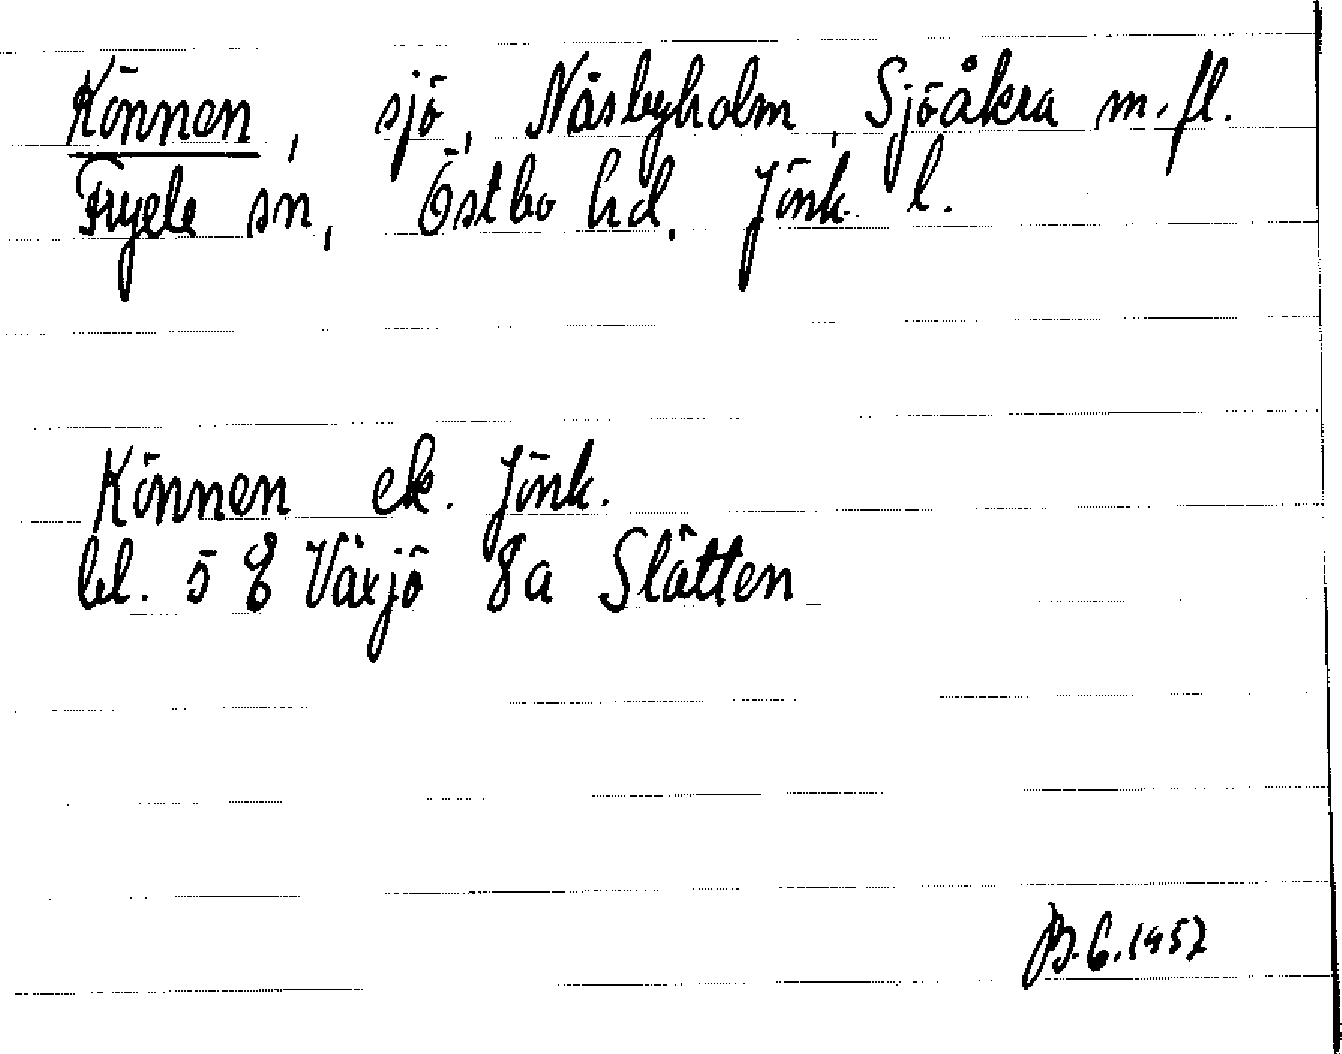 Können, sjö, Näsbyholm, Sjöåkra m.fl.
Fryele sn, Östbo hd. Jönk. l.
Können ek. Jönk.
bl. 5 E Växjö 8a Slätten
B.G. 1957